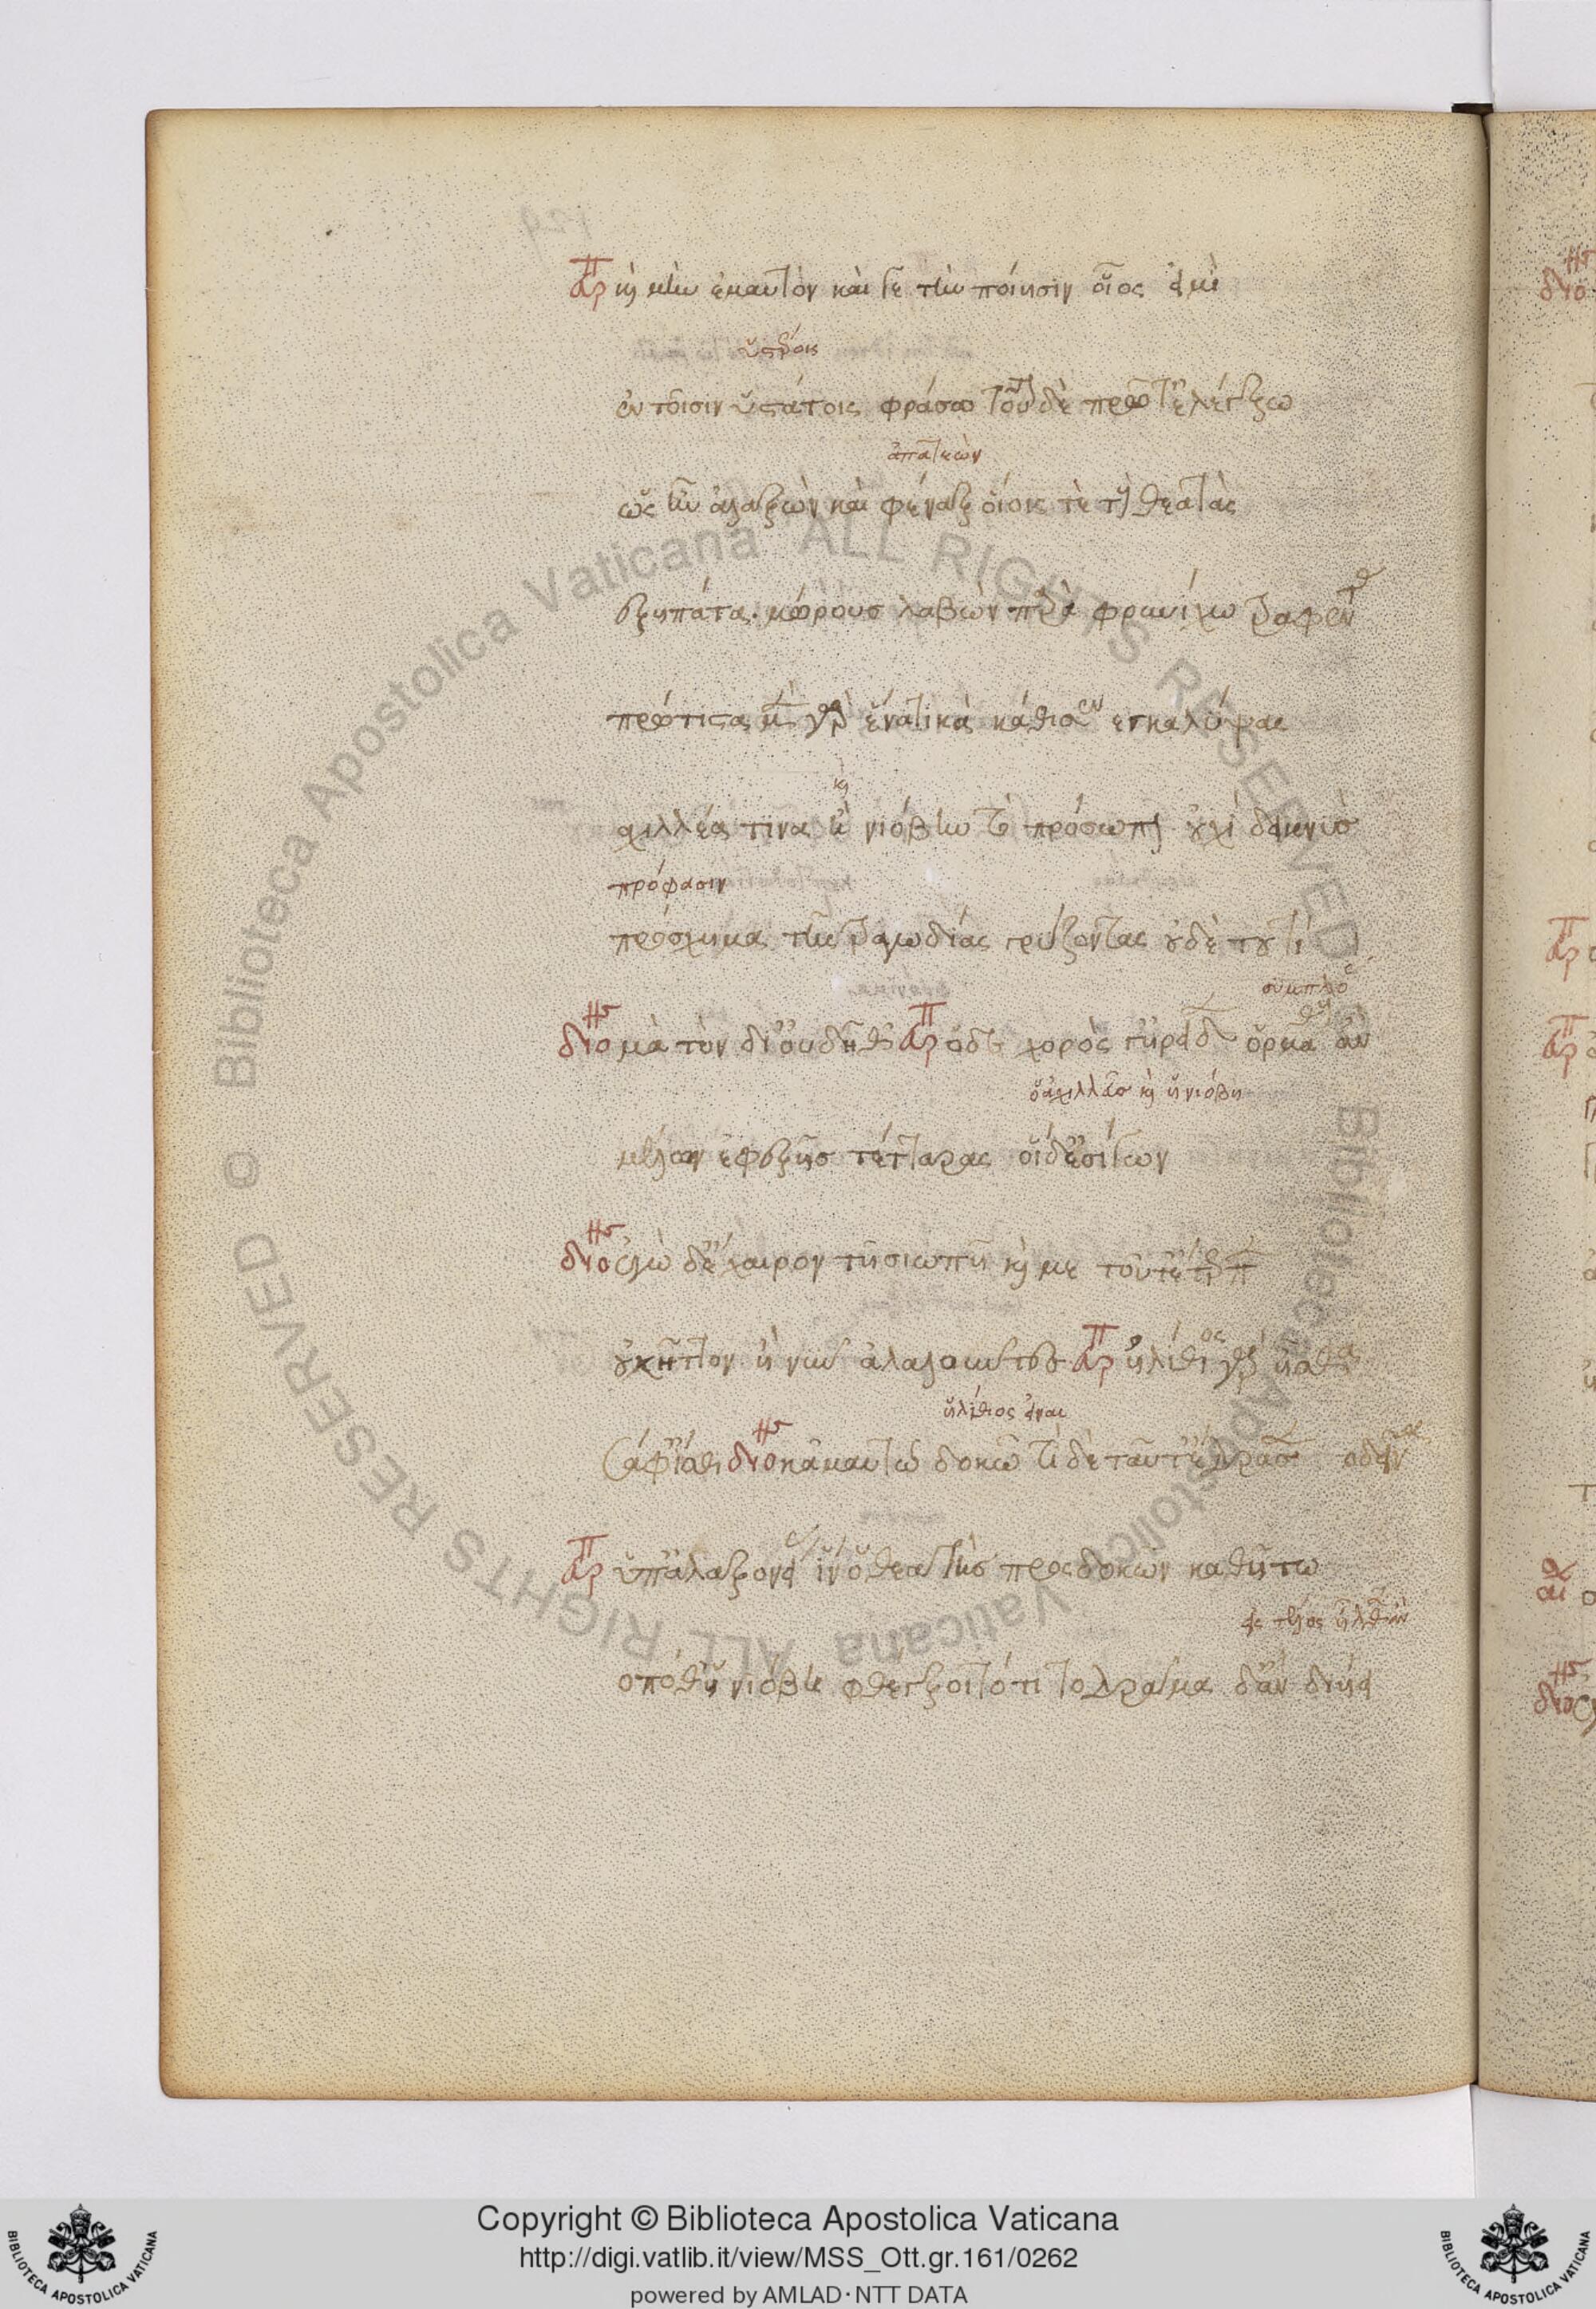 Εὐρ καὶ μὴν ἐμαυτὸν καί γε τὴν ποίησιν οἷος εἰμὶ
ὑστέροις
ἐν τοῖσιν ὑστάτοις φράσω τοῦτον δὲ πρῶτ' ἐλέγξω
ἀπατεὼν
ὡς ἦν ἀλαζὼν καὶ φέναξ οἵοις τε τοὺς θεατὰς
ἐξηπάτα. μώρους λαβὼν παρὰ φρυνίχω τραφέντας
πρώτιστα μὲν γὰρ ἕνα τινὰ κάθισεν ἐγκαλύψας
καὶ
ἀχιλλέα τινα ἢ νιόβην τὸ πρόσωπον οὐχὶ δεικνὺς
πρόφασιν
πρόσχημα τῆς τραγωδίας γρύζοντας οὐδὲ τουτί
συμπλο
διο μὰ τὸν δί' οὐ δῆθ' Εὐρ ὁ δὲ χορὸς γ' ἤρειδεν ὁρμαθοὺς ἂν
ὁ ἀχιλλεὺς καὶ ἡ νιόβη
μελῶν ἐφεξῆς τέτταρας οἱ δ' ἐσίγων
διο ἐγὼ δ' ἔχαιρον τῆ σιωπῆ καί με τοῦτ' ἔτερπεν
οὐχ ἧττον ἢ νῦν Εὐρ ἠλίθιος γὰρ ἦσθα
ἠλίθιος εἶναι
σάφ' ἴσθι διο κἀμαυτῶ δοκῶ τί δὲ ταῦτ' ἔδρασ' ὁ δεῖνα
Εὐρ ὑπ' ἀλαζονείας ἵν' ὁ θεατὴς προσδοκῶν καθῆτο
ὁπόθ' ἡ νιόβη φθέγξοιτό τι τὸ δρᾶμα δ' ἂν διήει